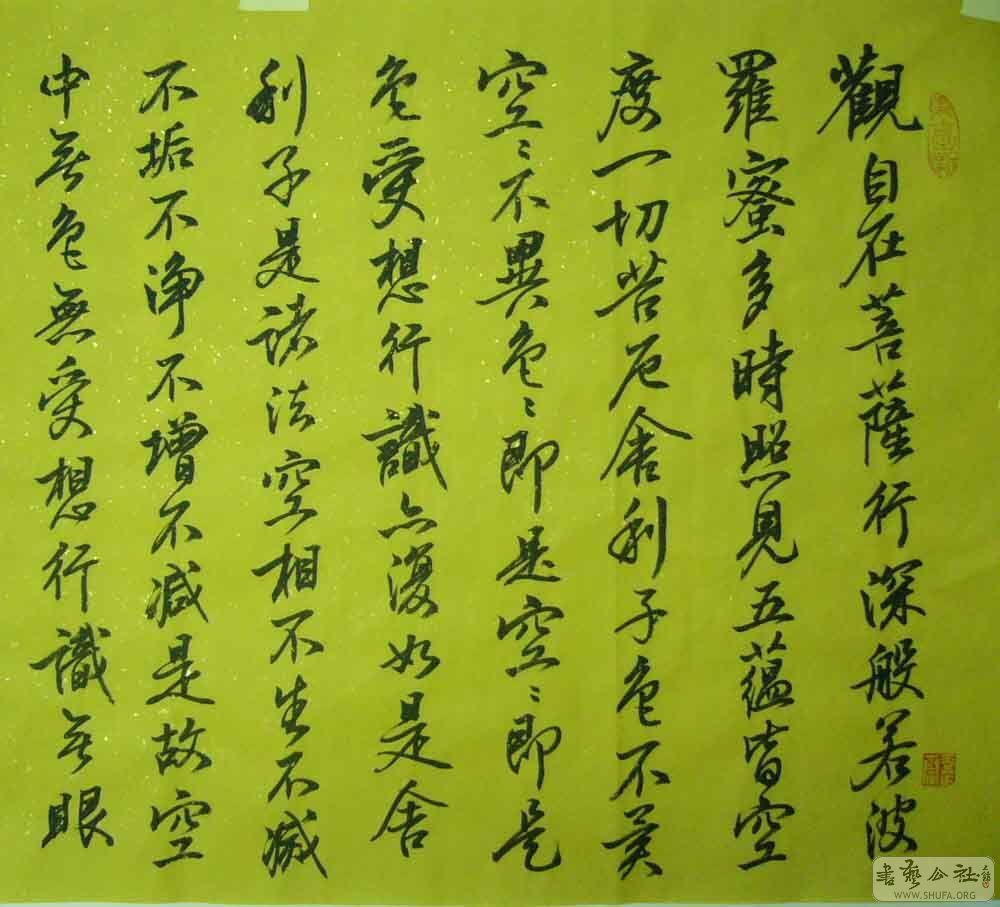 觀自在菩薩行深般若波
羅蜜多時照見五蘊皆空
度一切苦厄舍利子色不異
空〻不異色〻即是空〻即是
色受想行識亦復如是舍
利子是諸法空相不生不滅
不垢不淨不增不減是故空
中無色無受想行識無眼
書藝公社
WWW.SHUFA.ORG